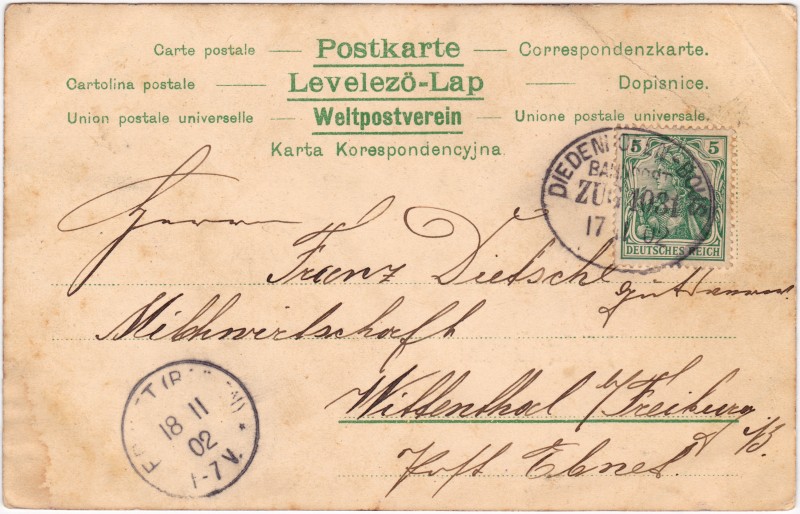 Carte postale — Postkarte — Correspondenzkarte.
Cartolina postale — Levelező-Lap — Dopisnice.
Union postale universelle — Weltpostverein — Unione postale universale.
Karta Korespondencyjna
5 5
DEUTSCHES REICH
BAHNPOST
ZUG 1031
17 11 02
Herrn
Franz Dietsche
Milchwirtschaft
Wittenthal b/Freiburg
i/B.
Post Ebnet.
EBNET (BADEN) *
18 11
02
6-7 V.